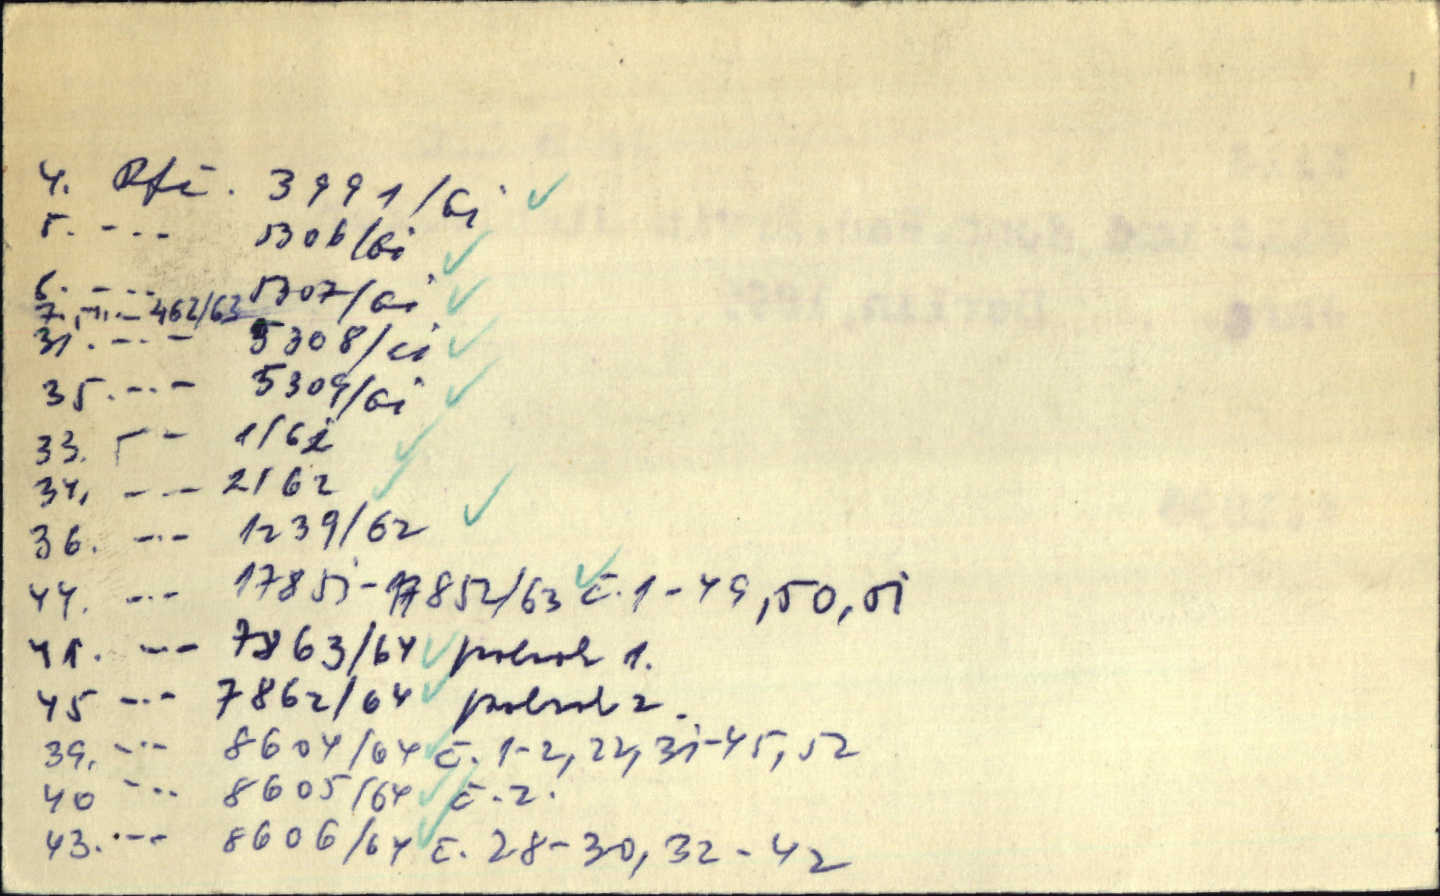 4. Přč. 3991/61 ✓
5. -"- 5306/61 ✓
6. -"- 5307/61 ✓
7. -"- 462/63
31. -"- 5308/61 ✓
35. -"- 5309/61 ✓
33. -"- 1/62 ✓
34. -"- 2/62 ✓
36. -"- 1239/62 ✓
44. -"- 17851-17852/63 ✓ č. 1-49, 50, 51
45. -"- 7863/64 ✓ polrok 1.
45 -"- 7862/64 ✓ polrok 2.
39. -"- 8604/64 ✓ č. 1-2, 22, 31-45, 52
40 -"- 8605/64 ✓ č. 2.
43. -"- 8606/64 ✓ č. 28-30, 32-42